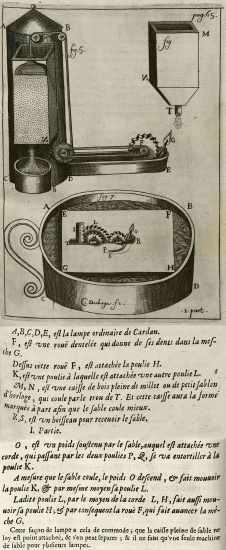 pag. 65.
fig. 5.
fig
M
N
T
A
B
N
C
D
E
fig. 7
A
B
E
F
G
H
C
D
I. part.
A,B,C,D,E, est la lampe ordinaire de Cardan.
F, est vne roüe dentelée qui donne de ses dents dans la mes-
che G.
Dessus cette roüe F, est attachée la poulie H.
K, est vne poulie à laquelle est attachée vne autre poulie L.
M, N, est vne caisse de bois pleine de millet ou de petit sablon
d'horloge, qui coule par le trou de T. Et cette caisse aura la forme
marquée à part afin que le sable coule mieux.
R, S, est vn boisseau pour recevoir le sable,
I. Partie.
O, est vn poids soustenu par le sable, auquel est attachée vne
corde, qui passant par les deux poulies P, Q, se va entortiller à la
poulie K.
A mesure que le sable coule, le poids O descend, & fait mouvoir
la poulie K. & par mesme moyen sa poulie L.
Ladite poulie L, par le moyen de la corde L, H, fait aussi mou-
voir sa poulie H, & par consequent la roüe F, qui fait avancer la mé-
che G.
Cette façon de lampe a cela de commode, que la caisse pleine de sable ne
luy est point attachée, & s'en peut séparer; & il ne faut qu'vne seule machine
de sable pour plusieurs lampes.